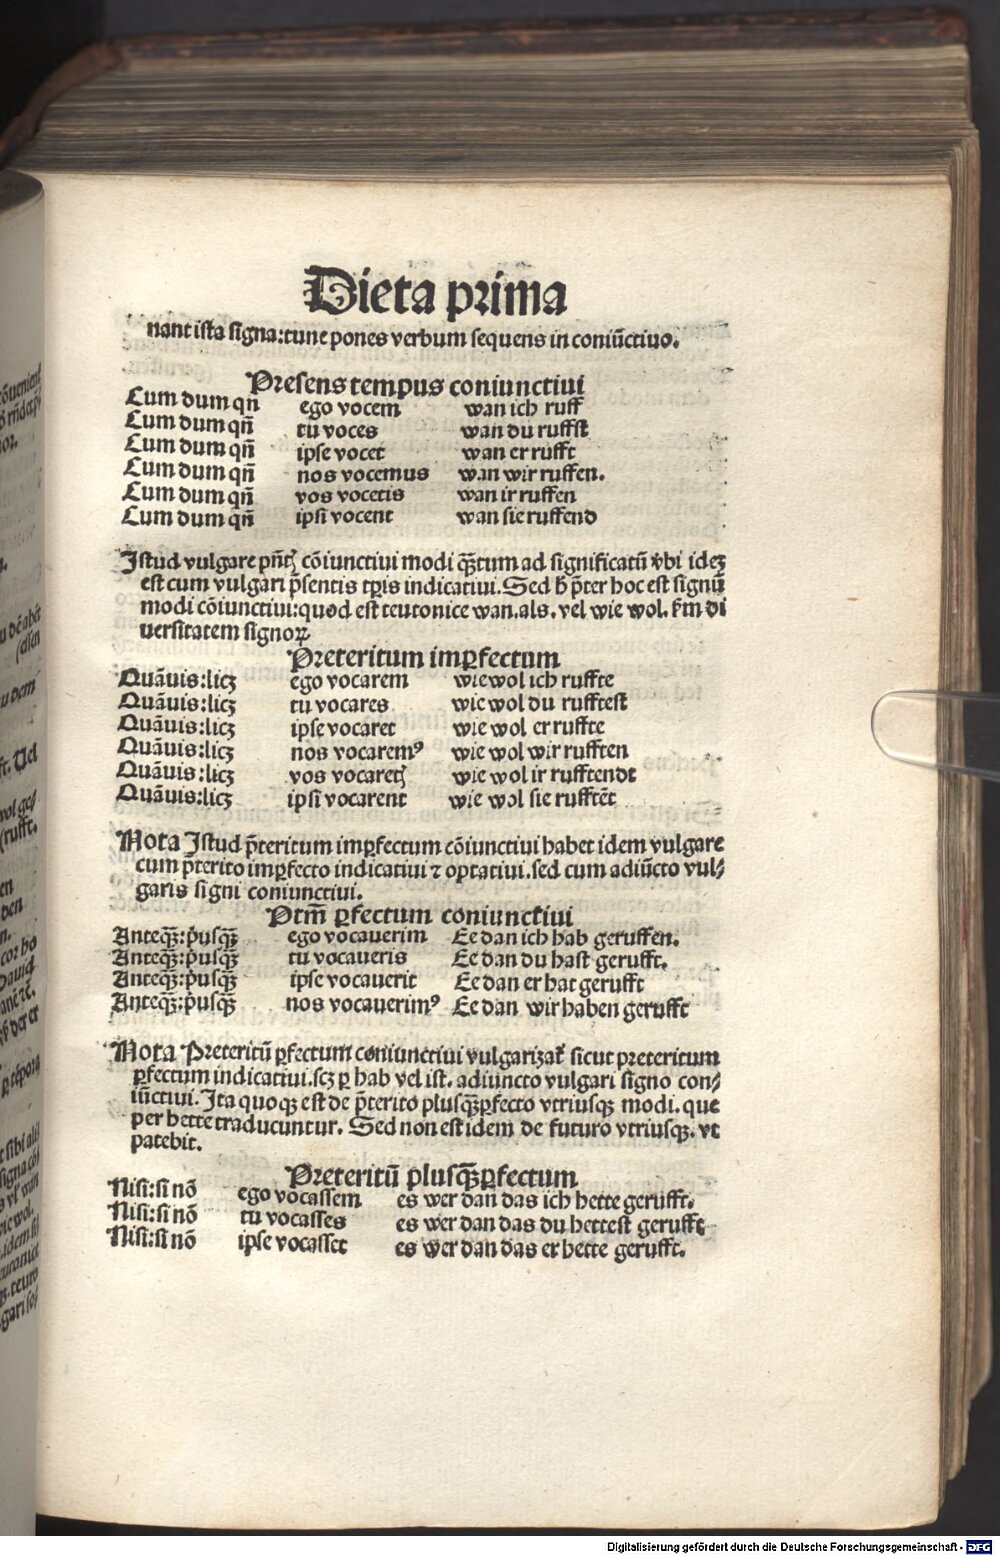 Dieta prima
nant ista signa:tunc pones verbum sequens in coniūctiuo.
Presens tempus coniunctiui
Cum dum qñ ego vocem wan ich ruff
Cum dum qñ tu voces wan du ruffst
Cum dum qñ ipse vocet wan er rufft
Cum dum qñ nos vocemus wan wir ruffen.
Cum dum qñ vos vocetis wan ir ruffen
Cum dum qñ ipsi vocent wan sie ruffend
Istud vulgare pñtꝭ cōiunctiui modi qꝫtum ad significatū v̄bi ideꝫ
est cum vulgari p̄sentis tꝑis indicatiui. Sed h̄ p̄ter hoc est signū
modi cōiunctiui:quod est teutonice wan.als. vel wie wol. km̄ di
uersitatem signoꝝ
Preteritum imꝑfectum
Quāuis:licꝫ ego vocarem wie wol ich ruffte
Quāuis:licꝫ tu vocares wie wol du rufftest
Quāuis:licꝫ ipse vocaret wie wol er ruffte
Quāuis:licꝫ nos vocaremꝰ wie wol wir rufften
Quāuis:licꝫ vos vocaretꝭ wie wol ir rufftendt
Quāuis:licꝫ ipsi vocarent wie wol sie rufftēt
Nota Istud p̄teritum imꝑfectum cōiunctiui habet idem vulgare
cum p̄terito imꝑfecto indicatiui ⁊ optatiui.sed cum adiūcto vul⸗
garis signi coniunctiui.
Ptm̄ ꝑfectum coniunctiui
Anteqꝫ:pͥusqꝫ ego vocauerim Ee dan ich hab geruffen.
Anteqꝫ:pͥusqꝫ tu vocaueris Ee dan du hast gerufft.
Anteqꝫ:pͥusqꝫ ipse vocauerit Ee dan er hat gerufft
Anteqꝫ:pͥusqꝫ nos vocauerimꝰ Ee dan wir haben gerufft
Nota Preteritū ꝑfectum coniunctiui vulgarizat᷑ sicut preteritum
ꝑfectum indicatiui.scꝫ ꝑ hab vel ist. adiuncto vulgari signo con⸗
iūctiui. Ita quoqꝫ est de p̄terito plusqꝫꝑfecto vtriusqꝫ modi. que
per hette traducuntur. Sed non est idem de futuro vtriusqꝫ. vt
patebit.
Preteritū plusqꝫꝑfectum
Nisi:si nō ego vocassem es wer dan das ich hette gerufft.
Nisi:si nō tu vocasses es wer dan das du hettest gerufft
Nisi:si nō ipse vocasset es wer dan das er hette gerufft.
Digitalisierung gefördert durch die Deutsche Forschungsgemeinschaft - DFG